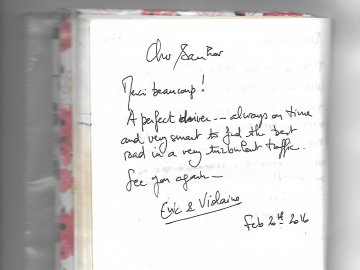 Cher Sankar
Merci beaucoup!
A perfect driver -- always on time
and very smart to find the best
road in a very turbulent traffic.
See you again —
Eric & Violaine
Feb 2nd 2016